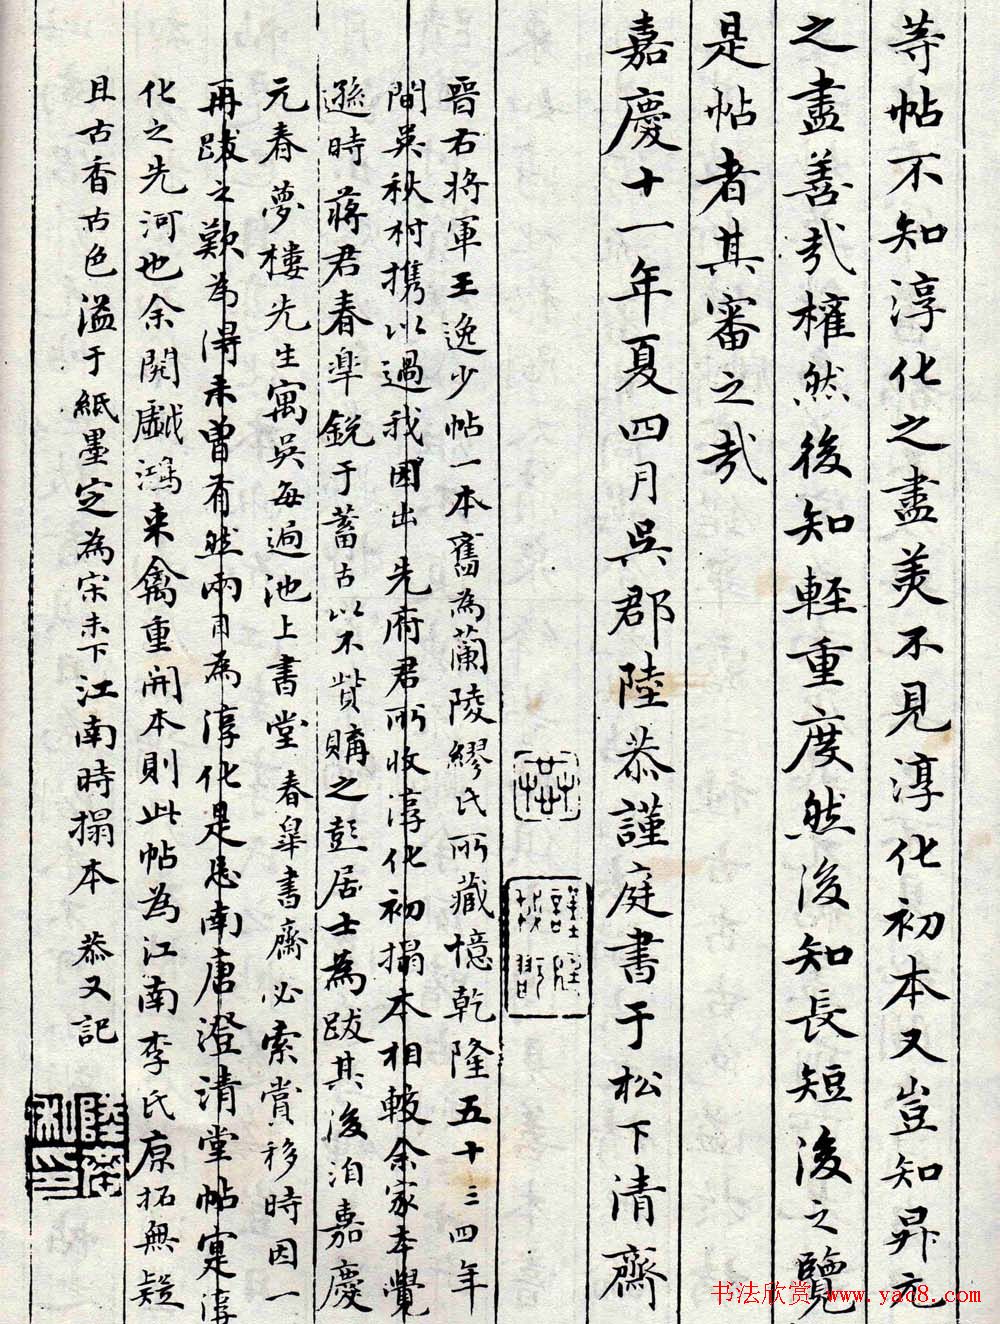 等帖不知淳化之盡美不見淳化初本又豈知昇元
之盡善哉權然後知輕重度然後知長短後之覽
是帖者其審之哉
嘉慶十一年夏四月吳郡陸恭謹庭書于松下清齋
晉右將軍王逸少帖一本舊為蘭陵繆氏所藏憶乾隆五十三四年
間吳秋村攜以過我因出先府君所收淳化初搨本相較余家本覺
遜時蔣君春皋銳于蓄古以不貲購之彭居士為跋其後洎嘉慶
元春夢樓先生寓吳每遍池上書堂春皋書齋必索賞移時因一
再跋之歎為得未曾有然兩目為淳化是忘南唐澄清堂帖寔淳
化之先河也余閱戲鴻來禽重開本則此帖為江南李氏原拓無疑
且古香古色溢于紙墨定為宋未下江南時搨本 恭又記
書法欣賞 www.yac8.com